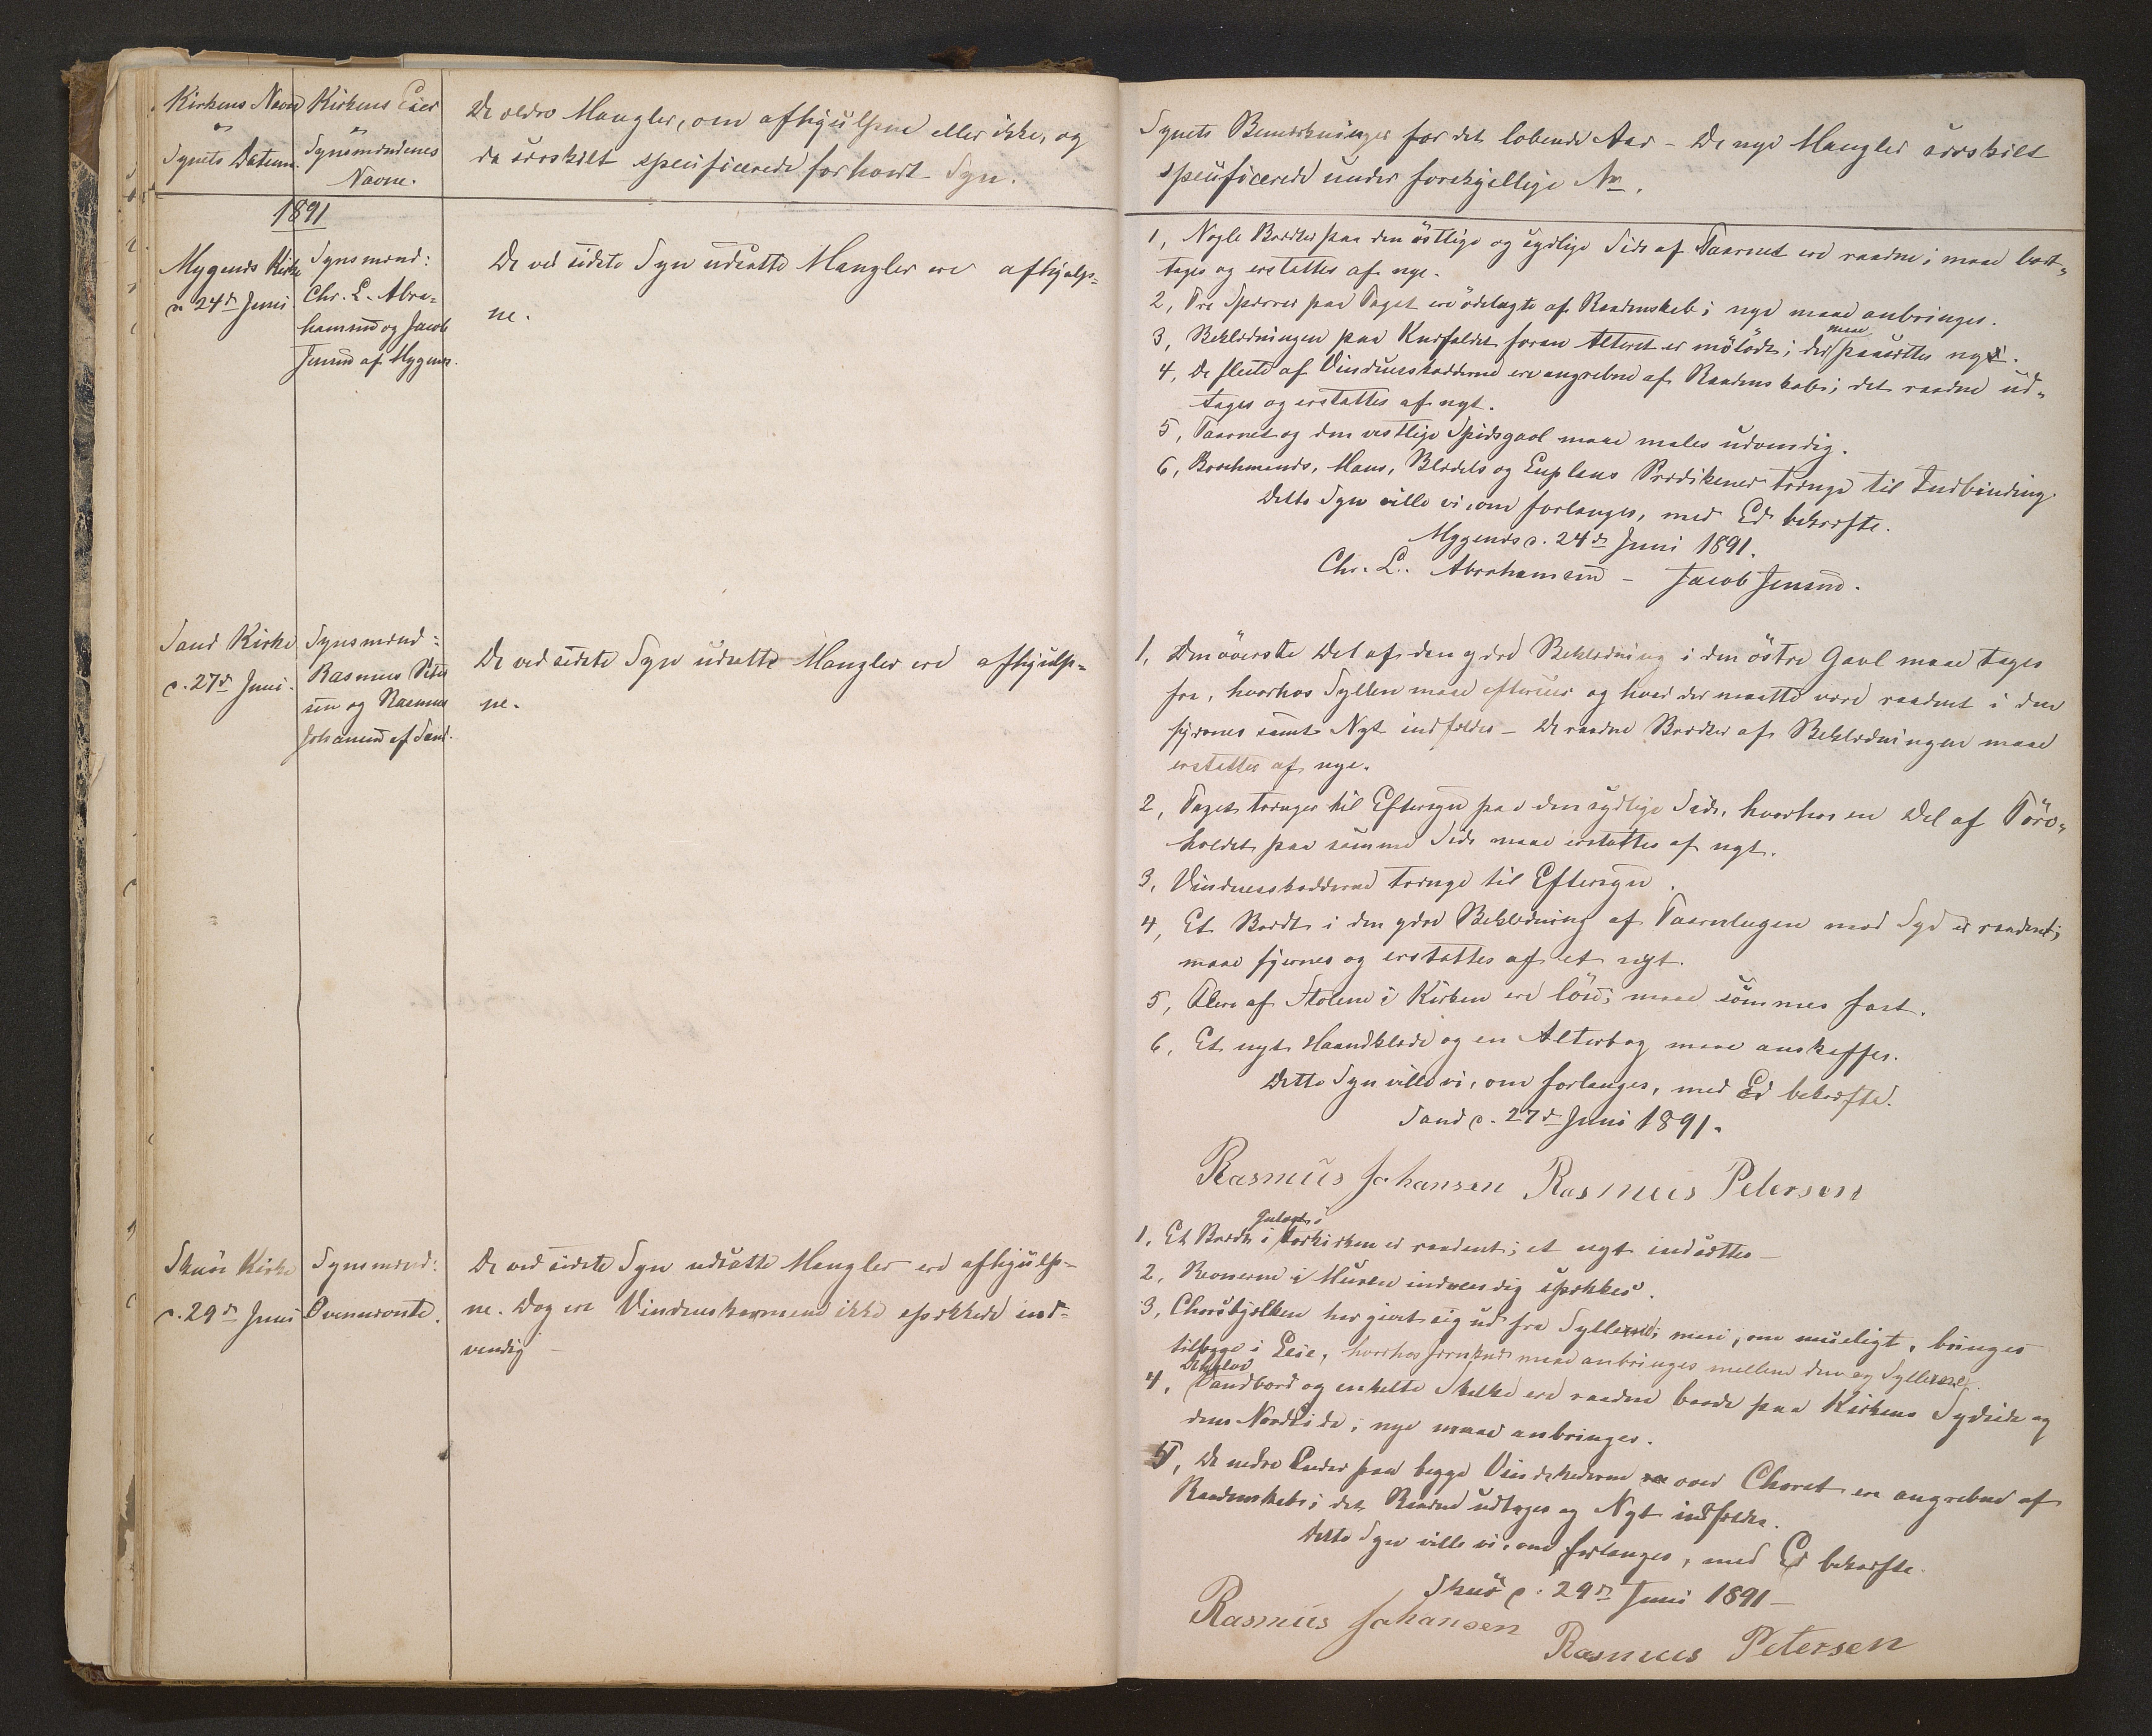 Kirkens Navn
og
Synets Datum.
Kirkens Eier
og
Synsmændenes
Navne.
De ældre Mangler, om afhjulpne eller ikke, og
da særskilt specificerede for hvert Syn.
1891
Mygenæs Kirke
d. 24de Juni
Synsmænd:
Chr. L. Abra=
hamsen og Jacob
Jensen af Mygenæs.
De ved sidste Syn udsatte Mangler ere afhjulp=
ne.
Sand Kirke
d. 27de Juni.
Synsmænd:
Rasmus Peter
sen og Rasmus
Johansen af Sand.
De ved sidste Syn udsatte Mangler ere afhjulp=
ne.
Skuø Kirke
d. 29de Juni
Synsmænd:
Ovennævnte.
De ved sidste Syn udsatte Mangler ere afhjulp=
ne. Dog ere Vindueskarmene ikke spækkede ind=
vendig —
Synets Bemærkninger for det løbende Aar - De nye Mangler særskilt
specificerede under forskjellige No.
1, Nogle Brædder paa den østlige og sydlige Side af Taarnet ere raadne; maae bort=
tages og erstattes af nye.
2, Tre Spærrer paa Taget ere ødelagte af Raadenskab; nye maae anbringes.
3, Beklædningen paa Knæfaldet foran Alteret er mølædt; der maa paasættes ny.
4, De fleste af Vinduesskodderne ere angrebne af Raadenskab; det raadne ud=
tages og erstattes af nyt.
5, Taarnet og den vestlige Spidsgavl maae males udvendig.
6, Brochmands, Maus, Blædels og Evplaus Prædikener trænge til Indbinding.
Dette Syn ville vi, om forlanges, med Ed bekræfte.
Mygenæs d. 24de Juni 1891.
Chr. L. Abrahamsen - Jacob Jensen.
1, Den øverste Del af den ydre Beklædning i den østre Gavl maae tages
fra, hvorhos Syllen maae efterses og hvad der maatte være raadent i den
fjernes samt Nyt indfældes - De raadne Brædder af Beklædningen maae
erstattes af nye.
2, Taget trænger til Eftersyn paa den sydlige Side, hvorhos en Del af Törv=
holdet paa samme Side maae erstattes af nyt.
3, Vinduesskodderne trænge til Eftersyn.
4, Et Brædt i den ydre Beklædning af Taarnlugen mod Syd er raadent;
maae fjernes og erstattes af et nyt.
5, Flere af Stolene i Kirken ere löse; maae sömmes fast.
6, Et nyt Haandklæde og en Alterbog maae anskaffes.
Dette Syn ville vi, om forlanges, med Ed bekræfte.
Sand d. 27de Juni 1891.
Rasmus Johansen Rasmus Petersen
1, Et Brædt i Gulvet i Forkirken er raadent; et nyt indsættes —
2, Revnerne i Muren indvendig spækkes.
3, Chorsbjælken har givet sig ud fra Syllerne; maae, om mueligt, bringes
tilbage i Leie, hvorhos Jernknæ maae anbringes mellem den og Syllerne.
4, Vandbord og enkelte Skalke ere raadne baade paa Kirkens Sydside og
dens Nordside; nye maae anbringes.
5, De nedre Ender paa begge Vindskederne over Choret ere angrebne af
Raadenskab; det Raadne udtages og Nyt indfældes.
Dette Syn ville vi, om forlanges, med Ed bekræfte.
Skuø d. 29de Juni 1891 —
Rasmus Johansen
Rasmus Petersen